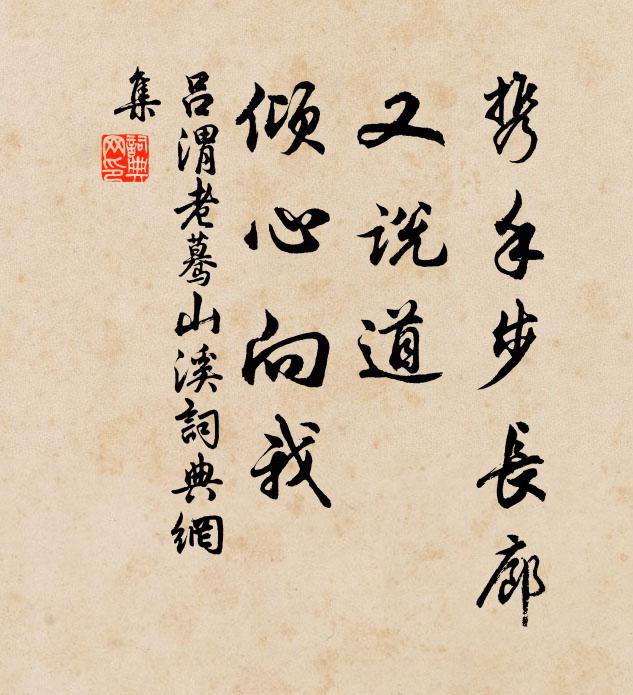 携手步長廊
又説道
傾心向我
吕渭老驀山溪詞典網
集
詞典網印